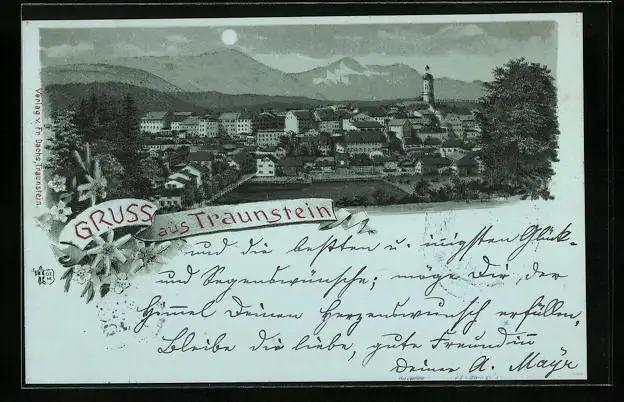 Verlag v. Fr. Dachs, Traunstein.
GRUSS
aus Traunstein
und die besten u. innigsten Glück-
und Segenswünsche; möge Dir der
Himmel Deinen Herzenswunsch erfüllen,
Bleibe die liebe, gute Freundin
Deiner A. Mayr